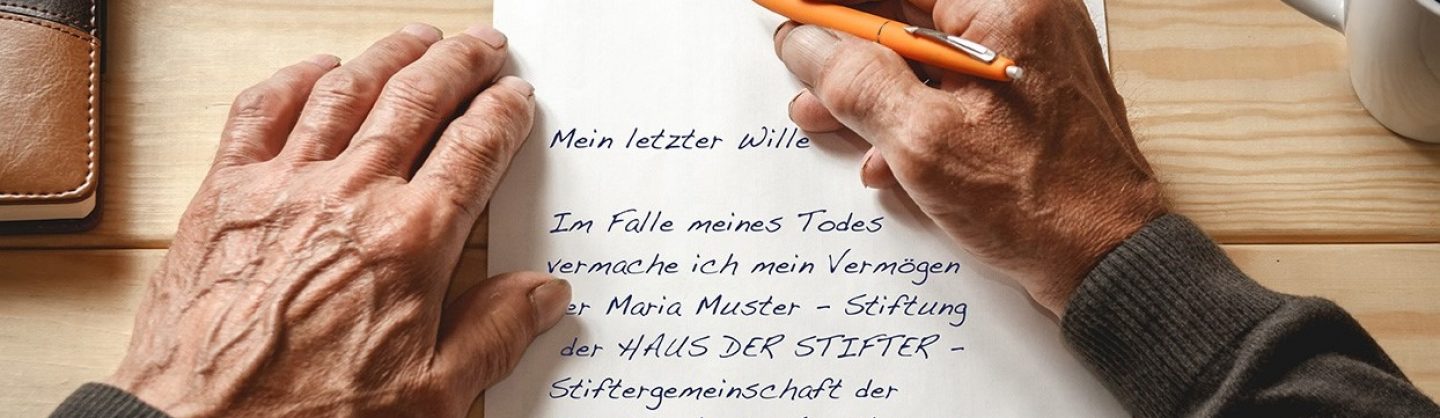 Mein letzter Wille
Im Falle meines Todes
vermache ich mein Vermögen
er Maria Muster - Stiftung
der HAUS DER STIFTER -
Stiftergemeinschaft der